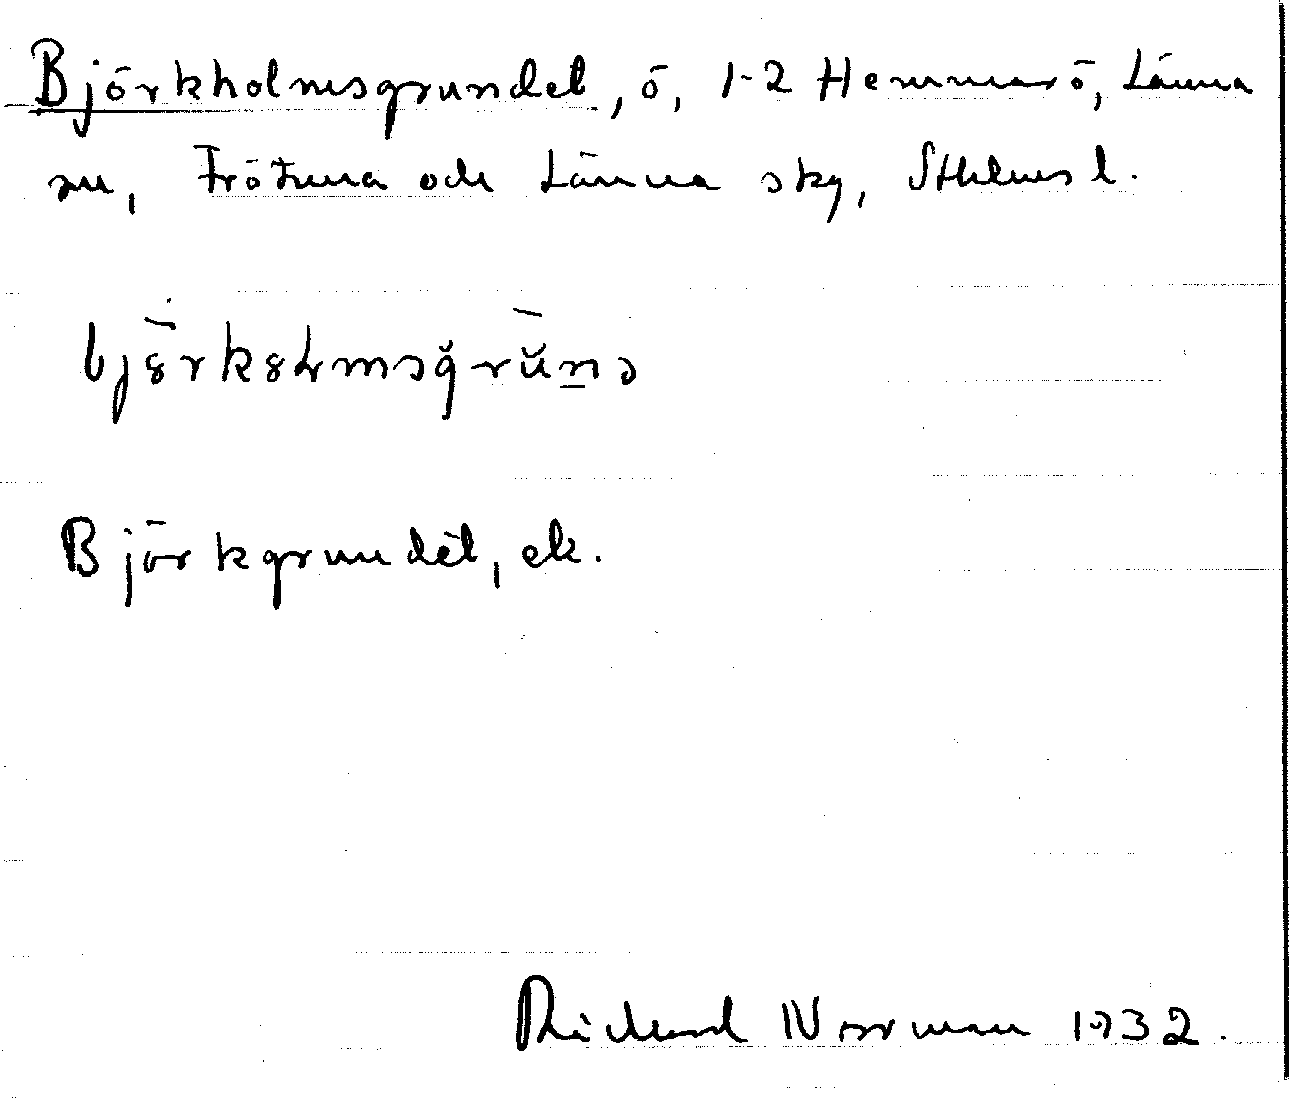 Björkholmsgrundet, ö, 1-2 Hemmarö, Länna
sn, Frötuna och Länna skg, Sthlms l.
Björkgrundet, ek.
Richard Norrman 1932.